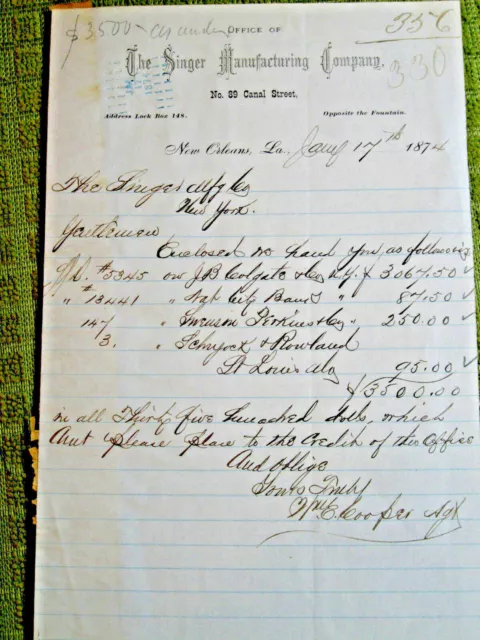 $3500 - as under
356
330
OFFICE OF
The Singer Manufacturing Company,
No. 89 Canal Street,
Address Lock Box 148. Opposite the Fountain.
New Orleans, La., Jany 17th 1874
The Singer Mfg Co
New York.
Gentlemen
Enclosed we hand you, as following
#5345 on J B Colgate & Co N.Y. $ 3067.50 ✓
" #13441 " Bank " 87.50 ✓
147 " Perkins & Co " 250.00 ✓
3. " & Rowland
St Louis Mo 95.00 ✓
$3500.00
in all Thirty five hundred dolls, which
Amt please place to the Credit of this Office
And oblige
Yours Truly
Wm E. Cooper Agt